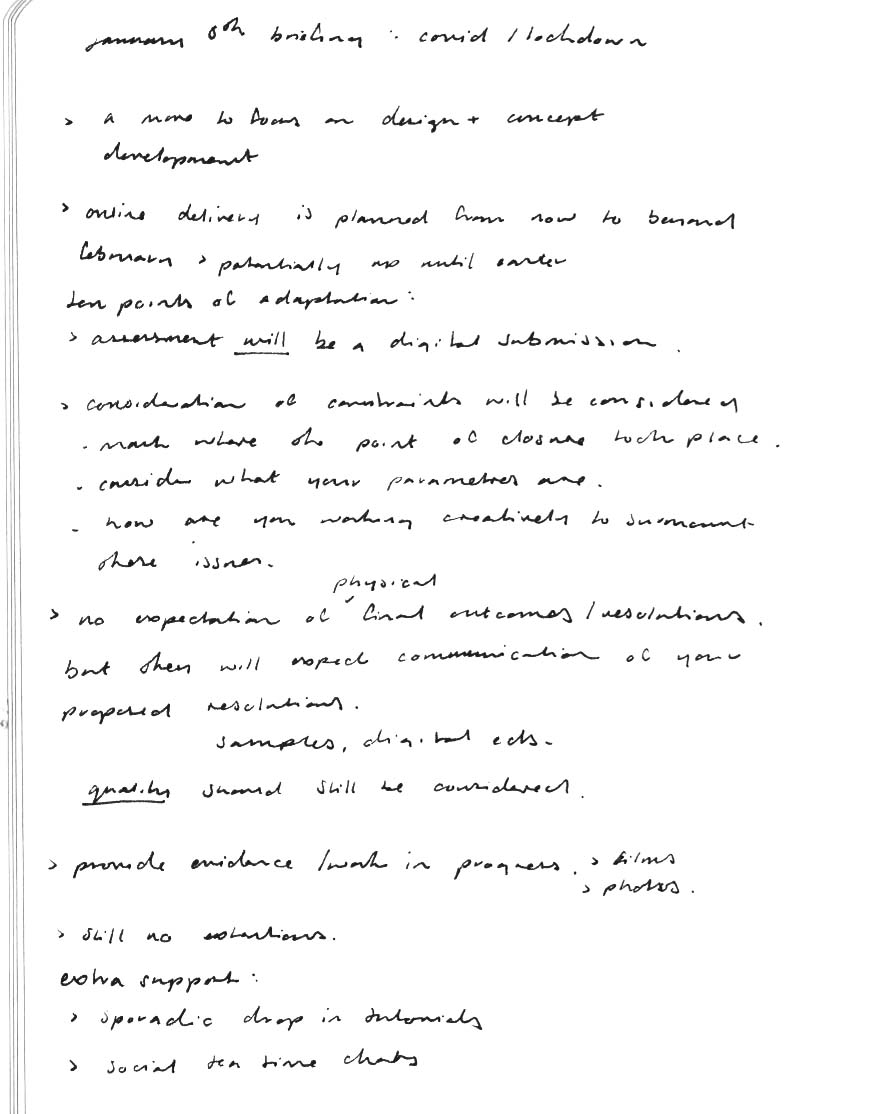 january 8th briefing : covid / lockdown
> a move to focus on design + concept
development
> online delivery is planned from now to beyond
february > potentially up until easter
ten points of adaptation :
> assessment will be a digital submission .
> consideration of constraints will be considered
- mark where the point of closure took place .
- consider what your parametres are .
- how are you working creatively to surmount
these issues .
physical
> no expectation of final outcomes / resolutions .
but they will expect communication of your
proposed resolutions .
samples, digital
quality should still be considered .
> provide evidence / work in progress . > films
> photos .
> still no
extra support :
> sporadic drop in tutorials
> social tea time chats